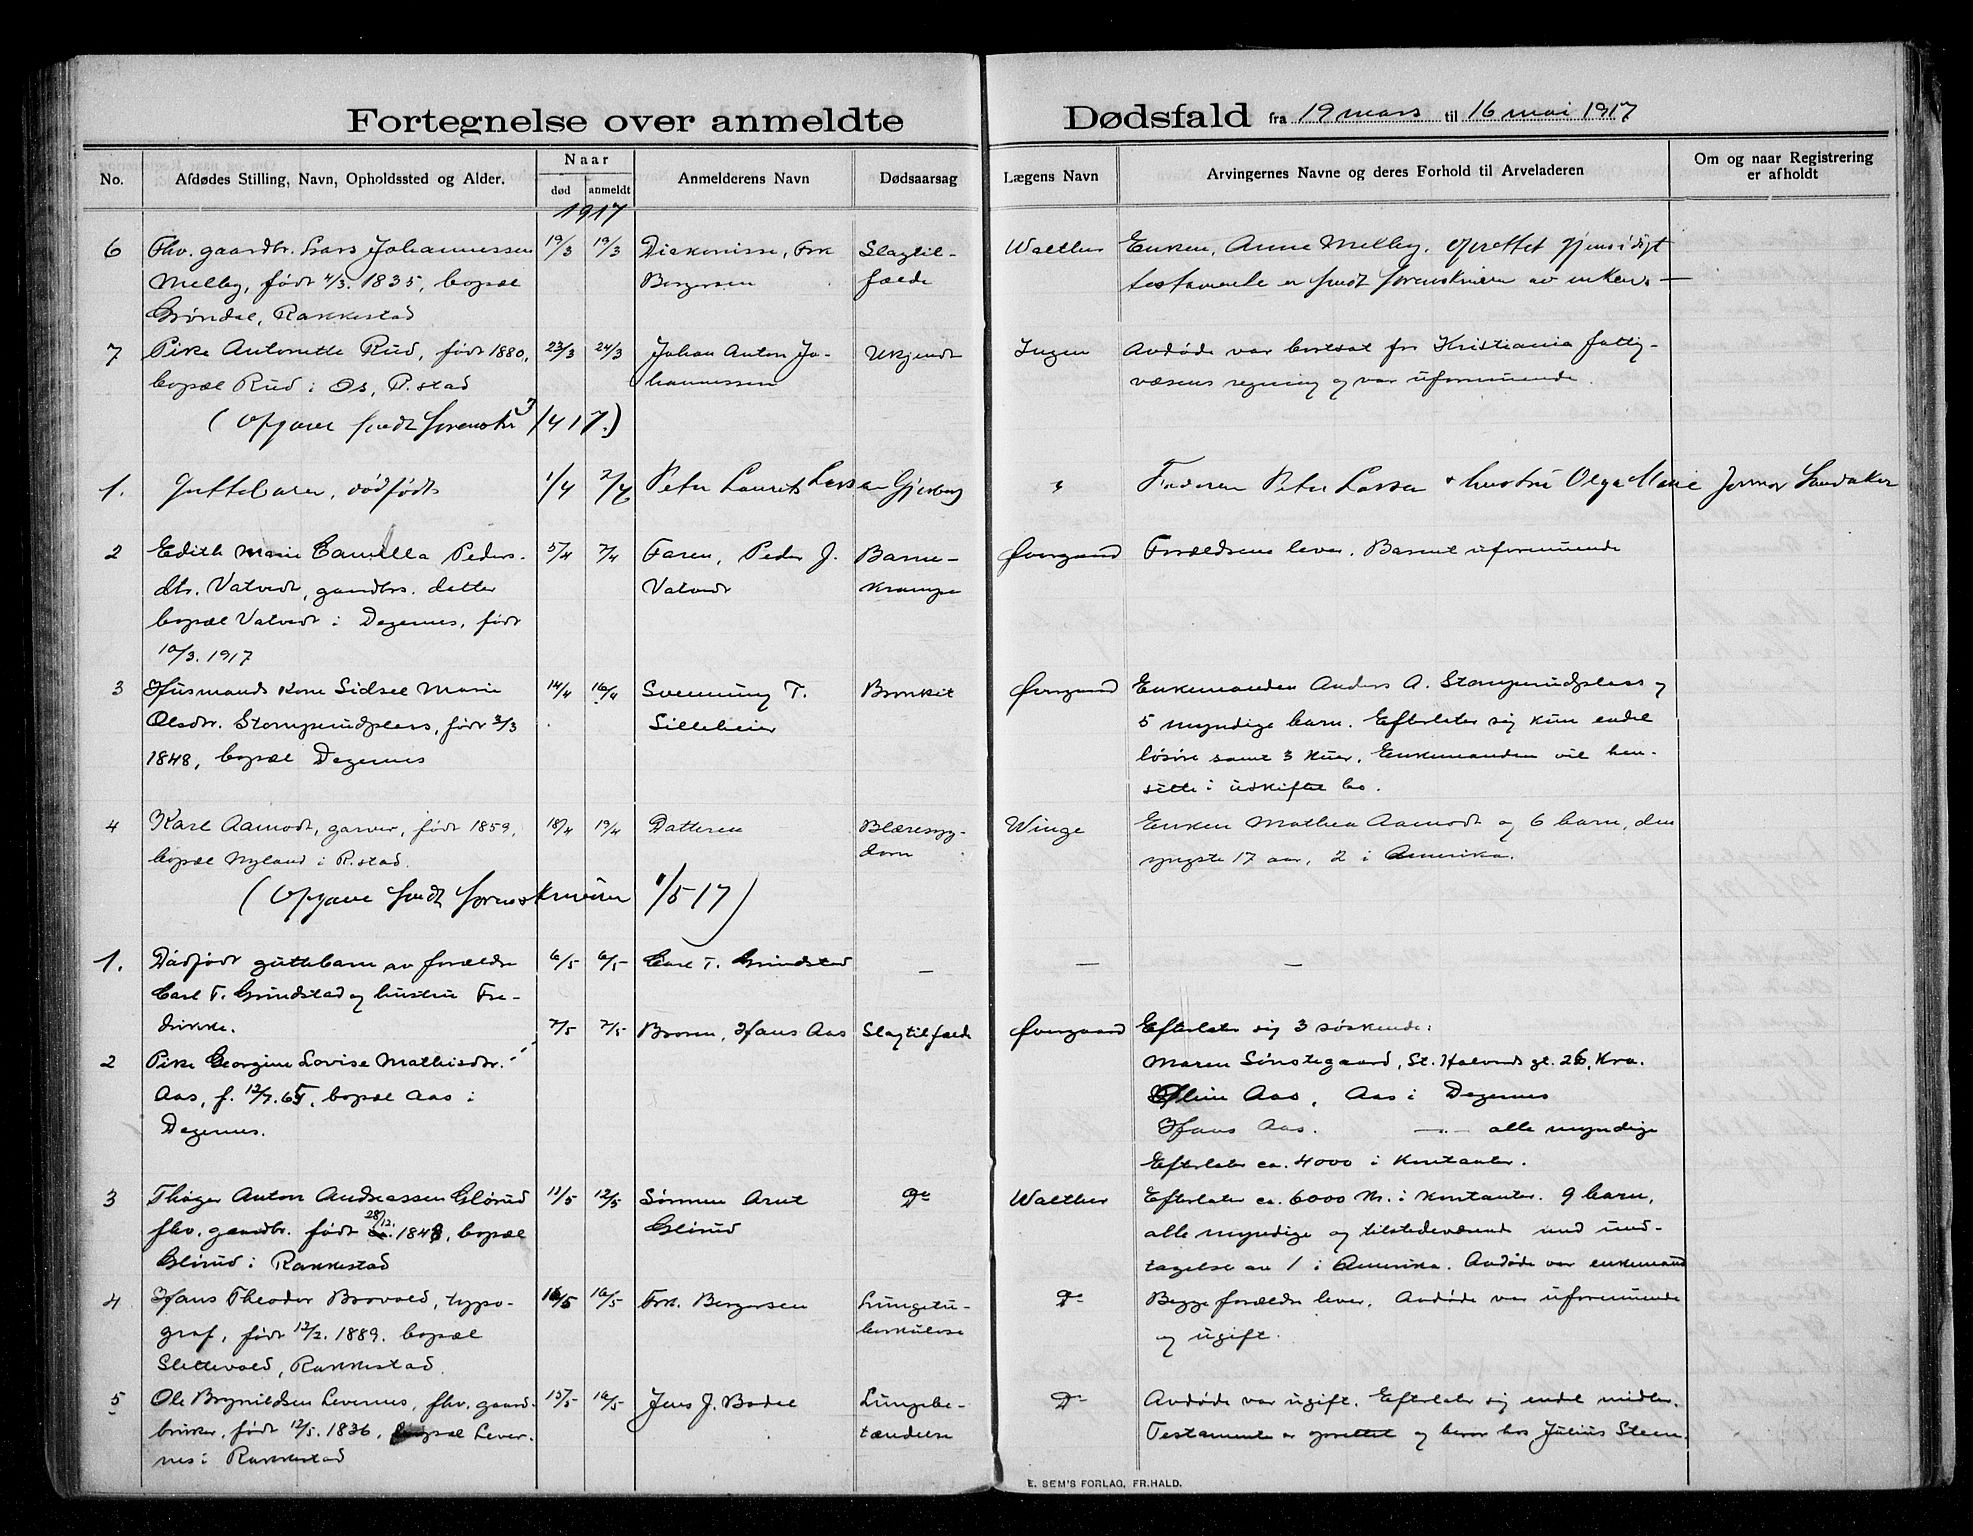 Fortegnelse over anmeldte Dødsfald fra 19 mars til 16 mai 1917
No. Afdødes Stilling, Navn, Opholdssted og Alder. Naar død anmeldt Anmelderens Navn Dødsaarsag Lægens Navn Arvingernes Navne og deres Forhold til Arveladeren Om og naar Registrering er afholdt
1917
6 Fhv. gaardbr. Lars Johannessen 19/3 19/3 Diakonisse, Frk Slagtil- Walther Enken, Anne Melby. Oprettet gjensidigt
Melby, født 4/3. 1835, bopæl Borgersen fælde testamente er sendt sorenskriven av enken.
Grøndal, Rakkestad
7 Pike Antonette Rud, født 1880, 23/3 24/3 Johan Anton Jo- Ukjendt Ingen Avdøde var bortsat for Kristiania fattig-
bopæl Rud i Os, R.stad hannessen væsens regning og var uformuende.
(Opgave sendt sorenskr 3/4 17.)
1. Guttebarn, dødfødt 1/4 2/4 Peter Laurits Larsen Gjersberg " Faderen Peter Larsen + hustru Olga Marie Sandaker
2 Edith Marie Camilla Peders- 5/4 7/4 Faren, Peder J. Barne- Øvergaard Forældrene lever. Barnet uformuende
dtr. Vatvedt, gaardbrs. datter Vatvedt krampe
bopæl Vatvedt i Degernes, født
10/3. 1917
3 Husmands kone Sidsel Marie 14/4 16/4 Svenning T. Bronkit Øvergaard Enkemanden Anders A. Stomperudplass og
Olsdtr. Stomperudplass, født 2/3 Sillebeier 5 myndige barn. Efterlater sig kun endel
1848, bopæl Degernes løsøre samt 3 kuer. Enkemanden vil hen-
sitte i uskiftet bo.
4 Karl Aamodt, garver, født 1859, 18/4 19/4 Datteren Blæresyg- Winge Enken Mathea Aamodt og 6 barn, den
bopæl Nyland i R.stad. dom yngste 17 aar, 2 i Amerika.
(Opgave sendt sorenskriveren 1/5 17)
1. Dødfødt guttebarn av forældre 6/5 6/5 Carl T. Grindstad — — —
Carl T. Grindstad og hustru Fre-
drikke. 7/5 7/5 Broren, Hans Aas Slagtilfælde Øvergaard Efterlater sig 3 søskende:
2 Pike Georgine Lovise Mathisdtr. Maren Sønstegaard, St. Halvards gt. 26, Kra.
Aas, f. 12/7. 65, bopæl Aas i Oline Aas, Aas i Degernes
Degernes. Hans Aas. —"— alle myndige
Efterlater ca. 4000 i kontanter.
3 Thøger Anton Andreassen Glørud 11/5 12/5 Sønnen Arnt Do Walther Efterlater ca. 6000 kr. i kontanter. 9 barn,
fhv. gaardbr. født 28/12. 1848, bopæl Glirud alle myndige og tilstedeværende med und-
Glirud i Rakkestad tagelse av 1 i Amerika. Avdøde var enkemand
4 Hans Theodor Brovold, typo- 16/5 16/5 Frk. Borgersen Lungetu- Do Begge forældre lever. Avdøde var uformuende
graf, født 12/2. 1889. bopæl berkulose og ugift.
Slettevold, Rakkestad.
5 Ole Brynildsen Levernes, fhv. gaard- 15/5 16/5 Jens J. Bodal Lungebe- Do Avdøde var ugift. Efterlater sig endel midler.
bruker, født 12/5. 1836, bopæl Lever- tændelse Testamente er oprettet og beror hos Julius Steen.
nes i Rakkestad
E. SEM'S FORLAG, FR.HALD.